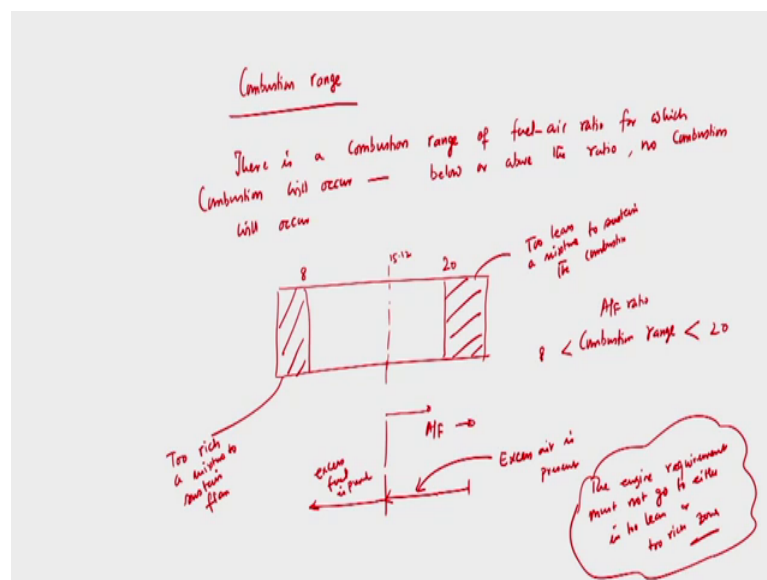 Combustion range
There is a Combustion range of fuel-air ratio for which
Combustion will occur — below or above the ratio, no Combustion
will occur
8
15.12
20
Too lean
a mixture to sustain
the combustion
A/F ratio
8 < Combustion range < 20
Too rich
a mixture to
sustain
flam
A/F →
excess
fuel
is
Excess air is
present
The engine requirement
must not go to either
too lean or
too rich zone